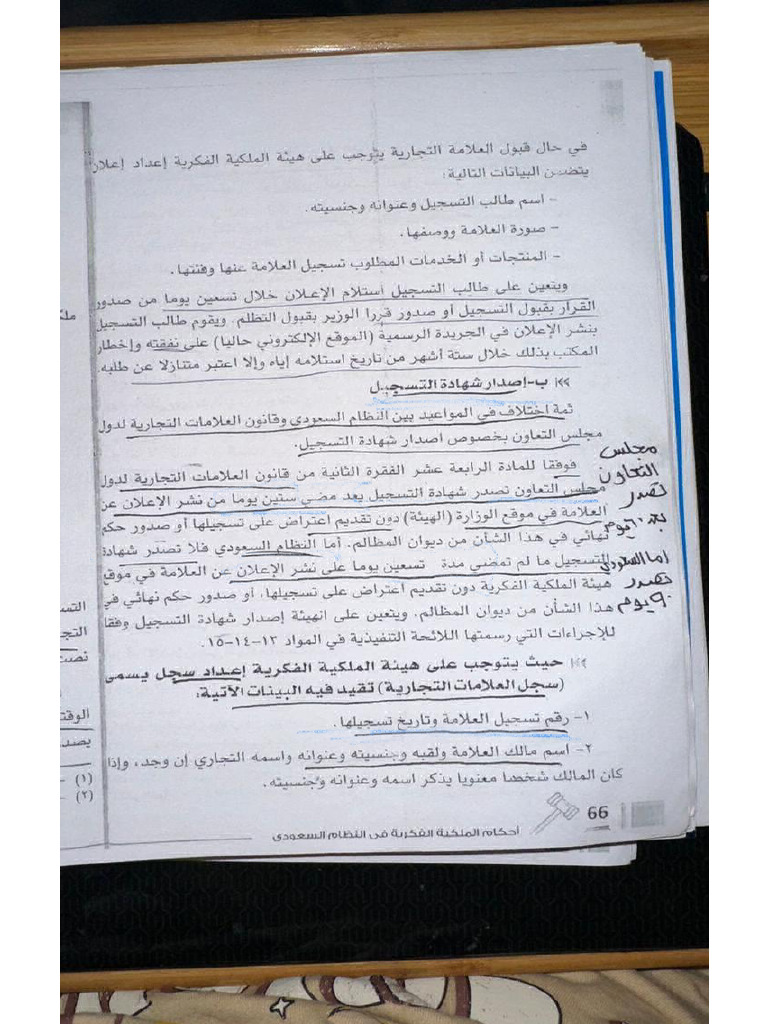 في حال قبول العلامة التجارية يتوجب على هيئة الملكية الفكرية إعداد إعلان
يتضمن البيانات التالية:
- اسم طالب التسجيل وعنوانه وجنسيته.
- صورة العلامة ووصفها.
- المنتجات أو الخدمات المطلوب تسجيل العلامة عنها وفئتها.
ويتعين على طالب التسجيل استلام الإعلان خلال تسعين يوما من صدور
القرار بقبول التسجيل أو صدور قررا الوزير بقبول التظلم. ويقوم طالب التسجيل
بنشر الإعلان في الجريدة الرسمية (الموقع الإلكتروني حاليا) على نفقته وإخطار
المكتب بذلك خلال ستة أشهر من تاريخ استلامه إياه وإلا اعتبر متنازلا عن طلبه.
ب-إصدار شهادة التسجيل
ثمة اختلاف في المواعيد بين النظام السعودي وقانون العلامات التجارية لدول
مجلس التعاون بخصوص اصدار شهادة التسجيل.
فوفقا للمادة الرابعة عشر الفقرة الثانية من قانون العلامات التجارية لدول
مجلس التعاون تصدر شهادة التسجيل بعد مضي ستين يوما من نشر الإعلان عن
العلامة في موقع الوزارة (الهيئة) دون تقديم اعتراض على تسجيلها أو صدور حكم
نهائي في هذا الشأن من ديوان المظالم. أما النظام السعودي فلا تصدر شهادة
التسجيل ما لم تمضي مدة تسعين يوما على نشر الإعلان عن العلامة في موقع
هيئة الملكية الفكرية دون تقديم اعتراض على تسجيلها، أو صدور حكم نهائي في
هذا الشأن من ديوان المظالم. ويتعين على الهيئة إصدار شهادة التسجيل وفقا
للإجراءات التي رسمتها اللائحة التنفيذية في المواد ١٣-١٤-١٥.
حيث يتوجب على هيئة الملكية الفكرية إعداد سجل يسمى
(سجل العلامات التجارية) تقيد فيه البينات الآتية:
١- رقم تسجيل العلامة وتاريخ تسجيلها.
٢- اسم مالك العلامة ولقبه وجنسيته وعنوانه واسمه التجاري إن وجد، وإذا
كان المالك شخصا معنويا يذكر اسمه وعنوانه وجنسيته.
66
أحكام الملكية الفكرية في النظام السعودي
مجلس
التعاون
تصدر
بعد ٦٠ يوم
اما السعودي
تصدر
٩٠ يوم
التجا
نصت
الوقت
يصد
(١)
(٢)